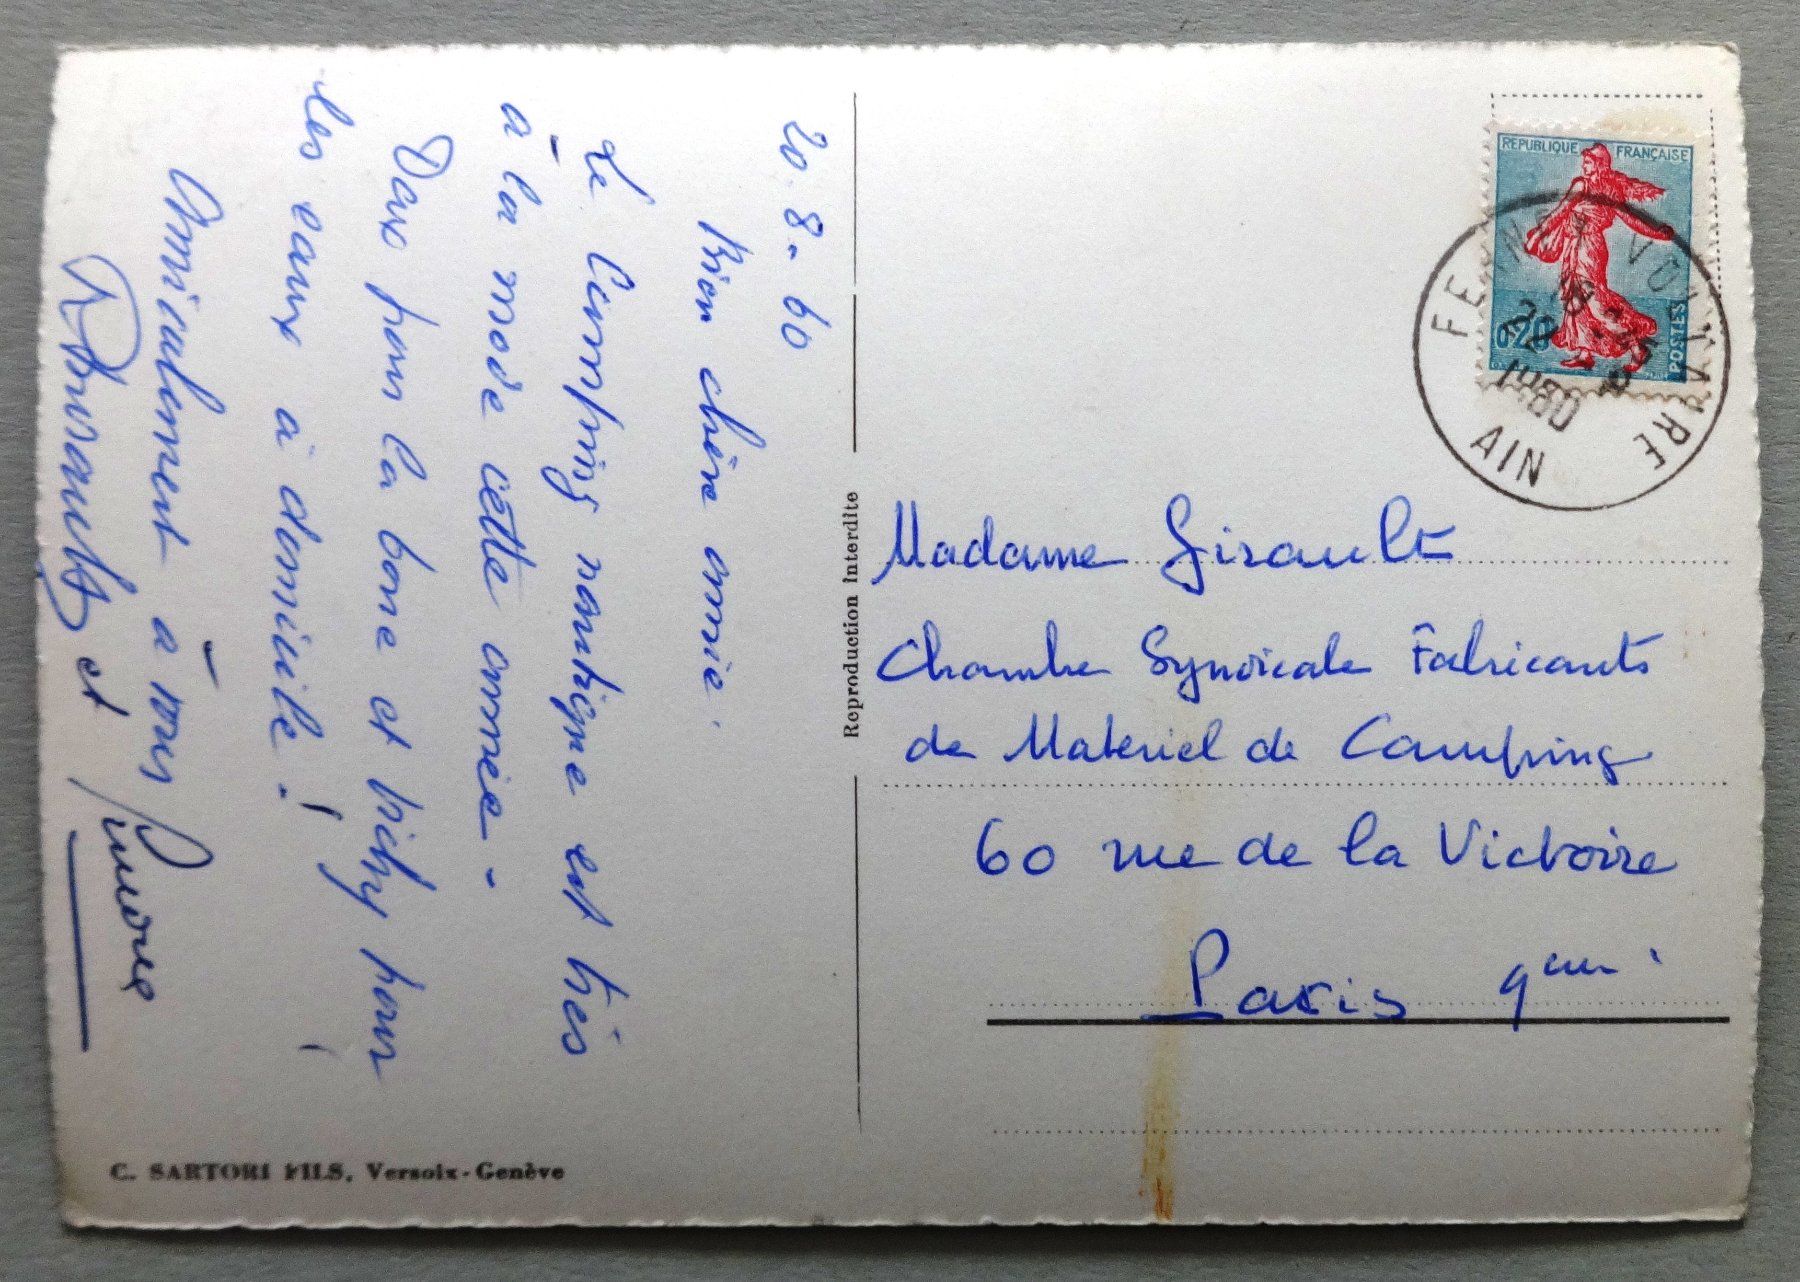 20.8-60
Bien chère amie.
Le Camping nautique est très
à la mode cette année-
Dax pour la boue et Vichy pour
les eaux à domicile!
Amicalement à vous
et
C. SARTORI FILS, Versoix-Genève
Reproduction interdite
REPUBLIQUE FRANÇAISE
0,20
POSTES
FERNEY VOLTAIRE
22-8
1960
AIN
Madame Girault
Chambre Syndicale Fabricants
de Materiel de Camping
60 rue de la Victoire
Paris 9eme